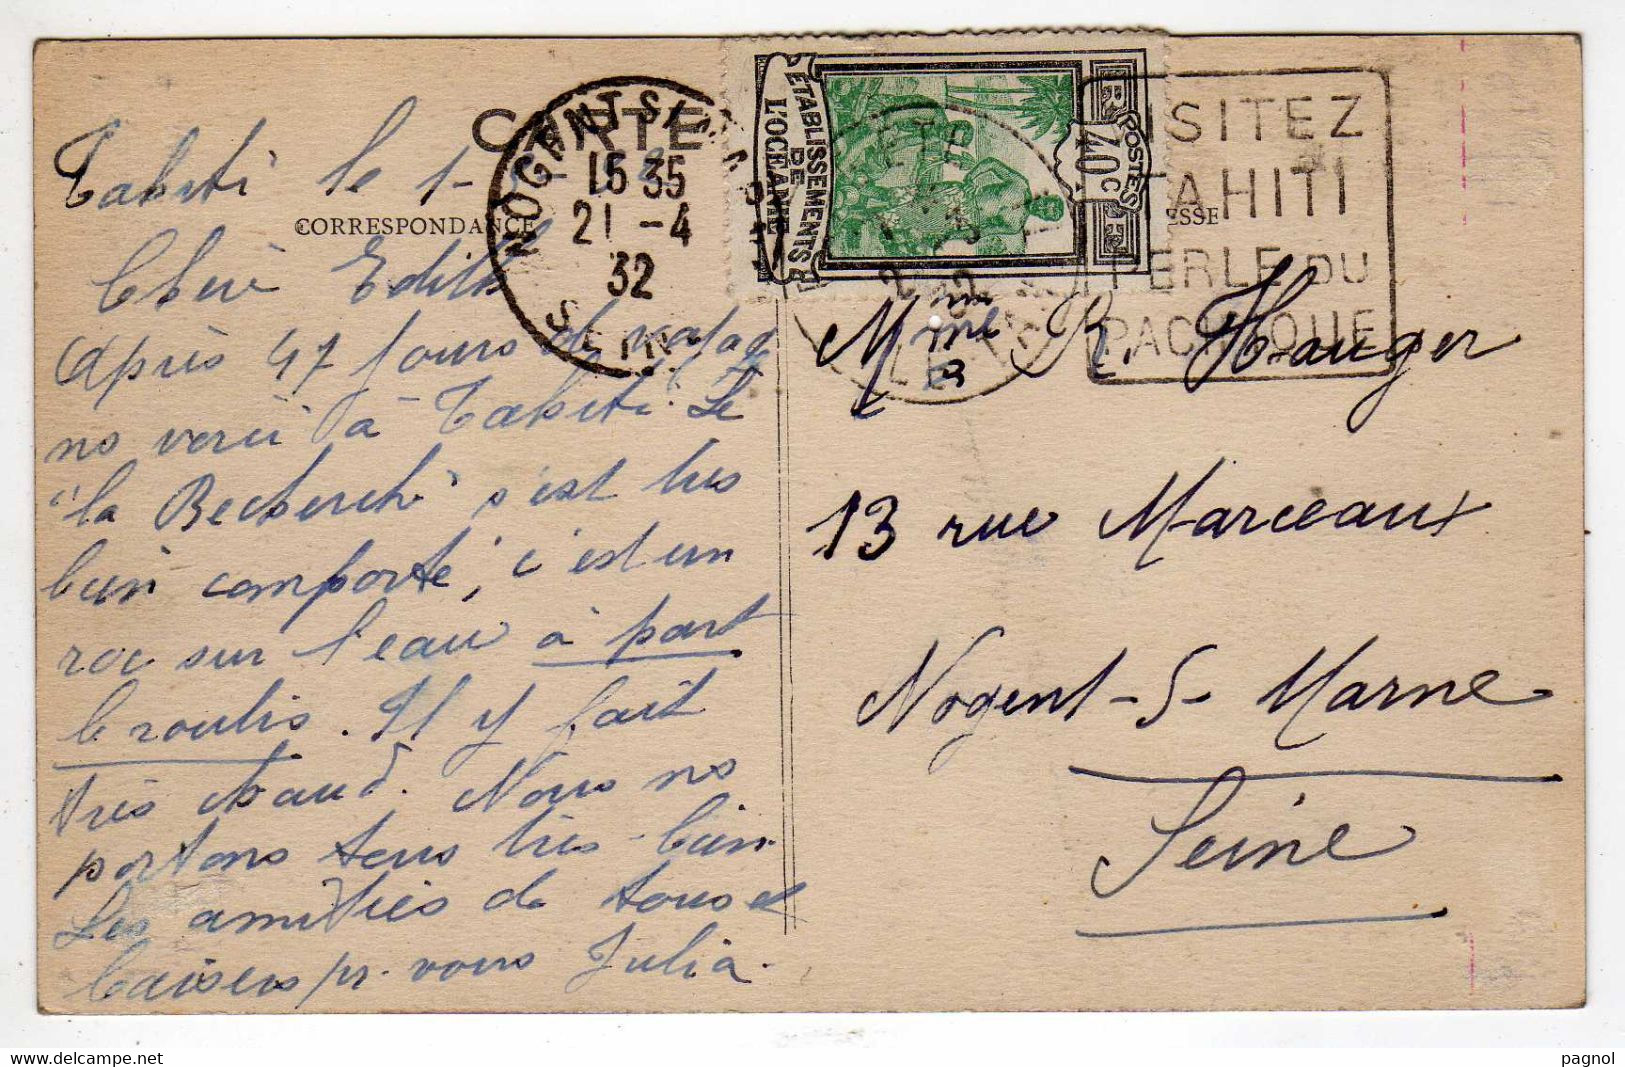 CARTE
CORRESPONDANCE
ESSE
NOGENT S/
15 35
21 -4
32
SEINE
ETABLISSEMENTS
DE
L'OCÉANIE
POSTES
40 c
RF
ISITEZ
TAHITI
PERLE DU
PACIFIQUE
Tahiti le 1-
Chère Edith
Après 47 jours de voyage
ns voici à Tahiti. Le
"la Recherche" s'est très
bien comporté, c'est un
roc sur l'eau à part
le roulis. Il y fait
très chaud. Nous ns
portons tous très bien.
Les amitiés de tous et
baisers pr. vous Julia.
Mme R. Hauger
13 rue Marceaux
Nogent-S-Marne
Seine
pagnol